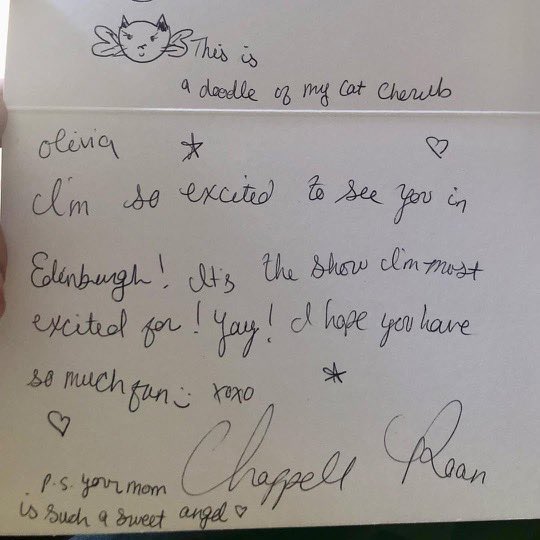 This is
a doodle of my cat Cherub
olivia
I'm so excited to see you in
Edinburgh! It's the show I'm most
excited for! Yay! I hope you have
so much fun :) xoxo
Chappell Roan
p.s. your mom
is such a sweet angel ♡